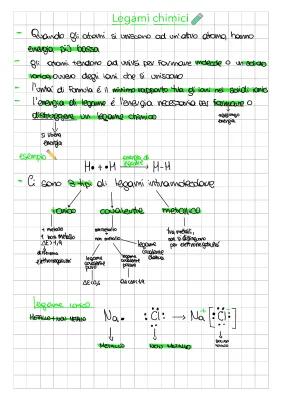 Legami chimici
- Quando gli atomi si uniscono ad un'altro atomo, hanno
energia più bassa
- gli atomi tendono ad unirsi per formare molecole o un solido
ionico ovvero degli ioni che si uniscono
- l'unità di formula è il minimo rapporto tra gli ioni nei solidi ionici
- l'energia di legame è l'energia necessaria per formare o
distruggere un legame chimico
aggiungo
energia
si libera
energia
esempio
H• + •H energia di legame → H-H
- Ci sono 3 tipi di legami intramolecolare
ionico covalente metallico
1 metallo
1 non metallo
ΔE > 1,9
non metallo
non metallo
tra metalli,
per elettronegatività
legame
covalente
dativo
legame
covalente
puro
legame
covalente
polare
legame ionico
METALLO + NON METALLO
Na• :Cl: → Na+ [:Cl:]-
METALLO NON METALLO